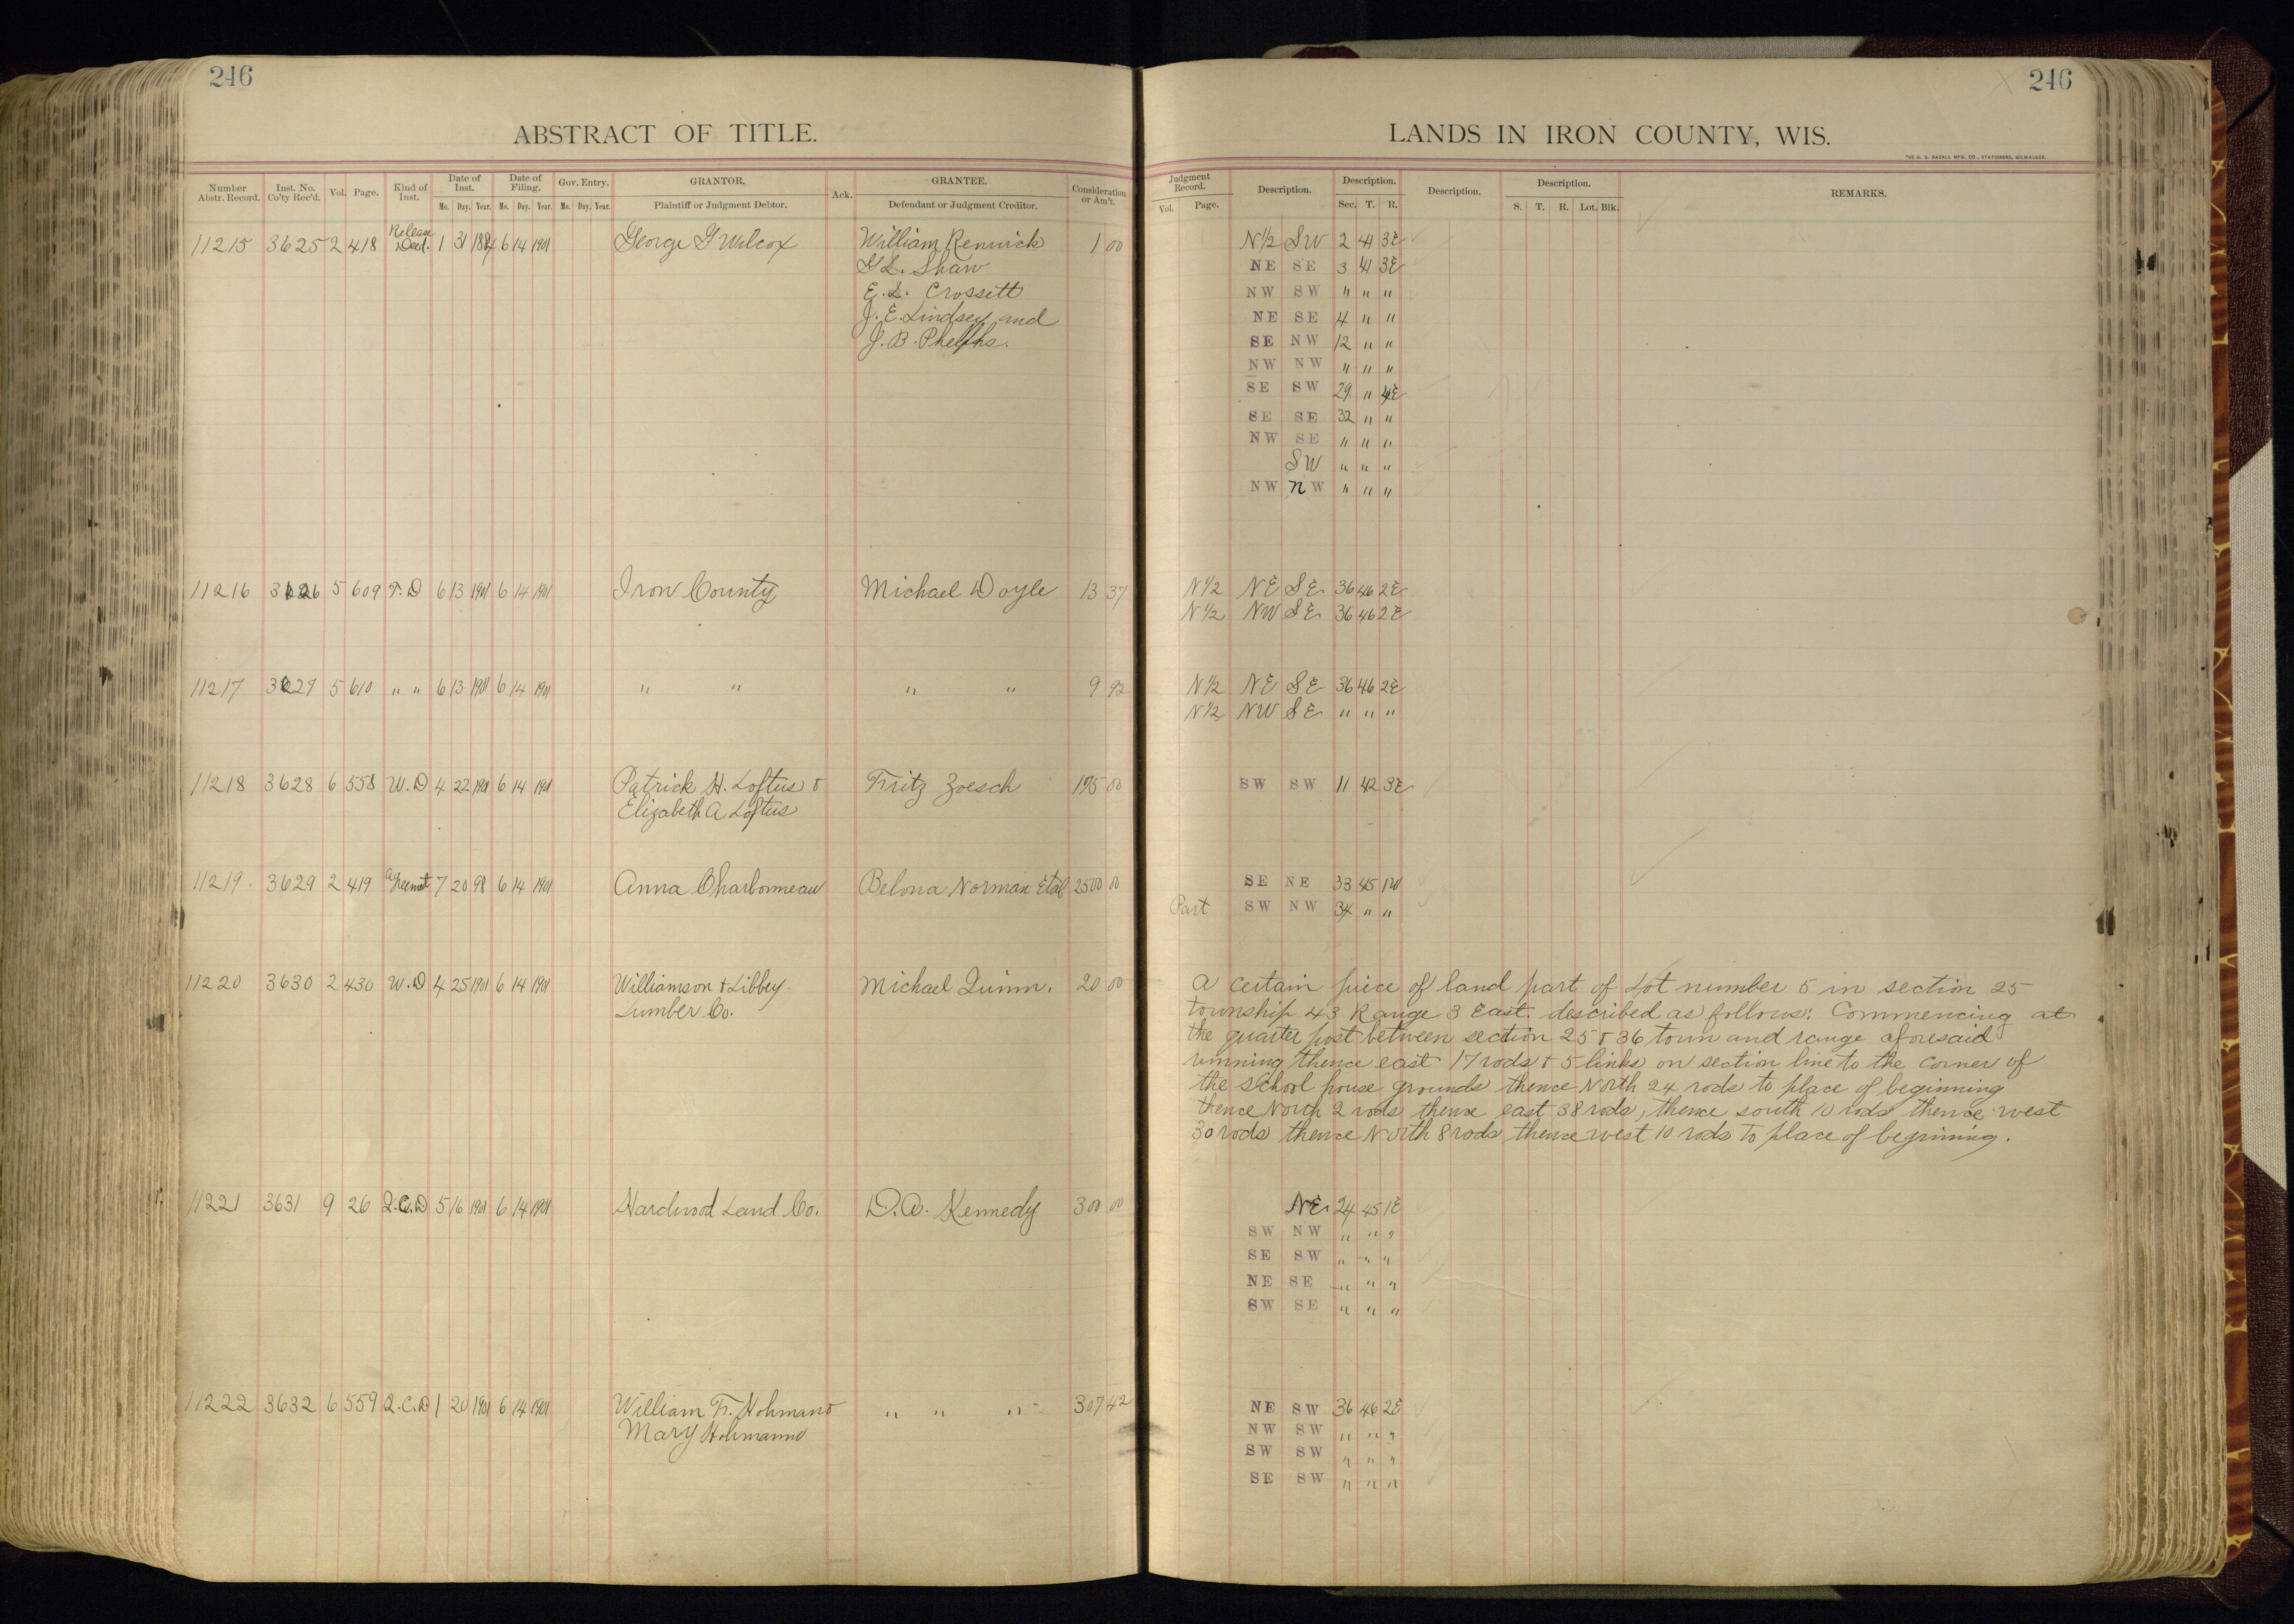 246
246
ABSTRACT OF TITLE.
LANDS IN IRON COUNTY, WIS.
THE H. G. RAZALL MFG. CO., STATIONERS, MILWAUKEE.
Number Abstr. Record. Inst. No. Co'ty Rec'd. Vol. Page. Kind of Inst. Date of Inst. Date of Filing. Gov. Entry. GRANTOR. Ack. GRANTEE. Consideration or Am't. Judgment Record. Description. Description. Description. Description. REMARKS.
Mo. Day. Year. Mo. Day. Year. Mo. Day. Year. Plaintiff or Judgment Debtor. Defendant or Judgment Creditor. Vol. Page. Sec. T. R. S. T. R. Lot. Blk.
11215 3625 2 418 Release Deed. 1 31 6 14 1901 George G Wilcox William Renwick 1 00 N1/2 SW 2 41 3E
G L. Shaw NE SE 3 41 3E
E. L. Crossett NW SW " " "
J. E. Lindsey and NE SE 4 " "
J. B. Phelphs. SE NW 12 " "
NW NW " " "
SE SW 29 " 4E
SE SE 32 " "
NW SE " " "
SW " " "
NW NW " " "
11216 3626 5 609 T.D 6 13 1901 6 14 1901 Iron County Michael Doyle 13 37 N1/2 NE SE 36 46 2E
N1/2 NW SE 36 46 2E
11217 3627 5 610 " " 6 13 1901 6 14 1901 " " " " 9 92 N1/2 NE SE 36 46 2E
N1/2 NW SE " " "
11218 3628 6 558 W.D 4 22 1901 6 14 1901 Patrick H. Loftus & Fritz Zoesch 175 00 SW SW 11 42 3E
Elizabeth A Loftus
11219 3629 2 419 Agreemt 7 20 98 6 14 1901 Anna Charbonneau Belona Norman Etal 2500 00 SE NE 33 45 1W
Part SW NW 34 " "
11220 3630 2 430 W.D 4 25 1901 6 14 1901 Williamson & Libbey Michael Quinn. 20 00 A certain piece of land part of Lot number 5 in section 25
Lumber Co. township 43 Range 3 East. described as follows: Commencing at
the quarter post between section 25 & 36 town and range aforesaid
running thence east 17 rods & 5 links on section line to the corner of
the school house grounds thence North 24 rods to place of beginning
thence North 2 rods thence east 38 rods, thence south 10 rods thence west
30 rods thence North 8 rods thence west 10 rods to place of beginning.
11221 3631 9 26 Q.C.D 5 16 1901 6 14 1901 Hardwood Land Co. D.A. Kennedy 300 00 NE 24 45 1E
SW NW " " "
SE SW " " "
NE SE " " "
SW SE " " "
11222 3632 6 559 Q.C.D 1 20 1901 6 14 1901 William F. Hohman & " " " 307 42 NE SW 36 46 2E
Mary Hohmann NW SW " " "
SW SW " " "
SE SW " " "